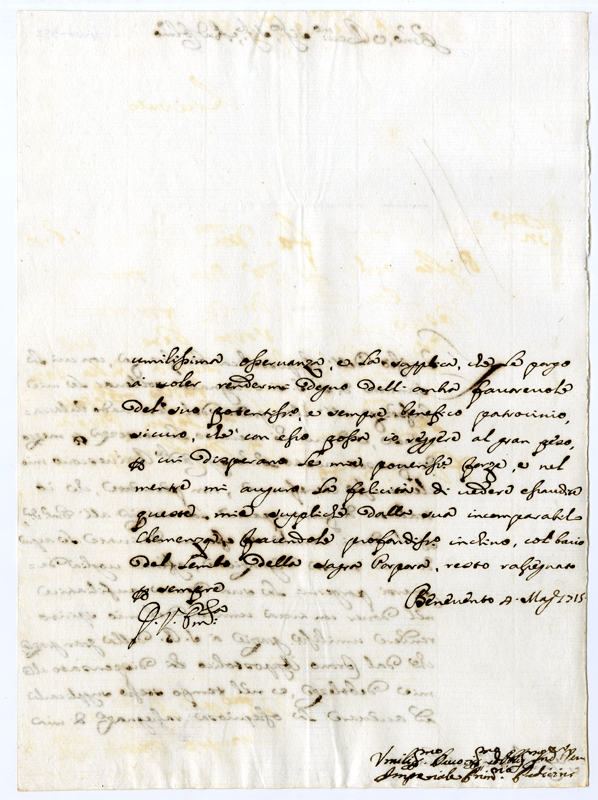 umilissima osservanza, e la supplica, che le porgo
à voler rendermi degno dell'ombra favorevole
del suo potentiss:º e sempre benefico patrocinio,
sicuro, che con esso possa io reggere al gran peso,
p cui disperano le mie poveriss:e forze, e nel
mentre mi auguro la felicità di vedere esaudite
queste mie suppliche dalla sua incomparabile
Clemenza, facendole profondiss:º inchino, col bacio
del lembo della sagra Porpora, resto rassegnato
p sempre
Benevento 4 Mag: 1715
D. V. Em:za
Umiliss:mo
Imperiale